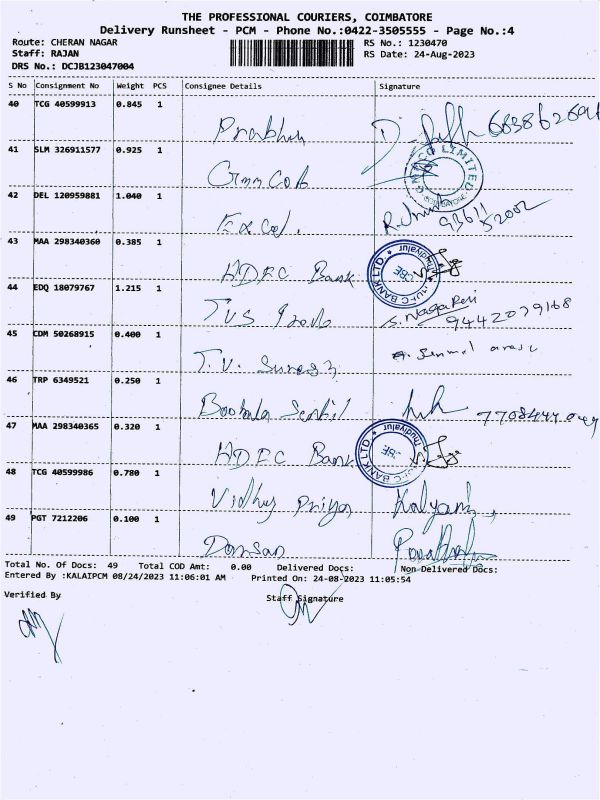 THE PROFESSIONAL COURIERS, COIMBATORE
Delivery Runsheet - PCM - Phone No.:0422-3505555 - Page No.:4
Route: CHERAN NAGAR RS No.: 1230470
Staff: RAJAN RS Date: 24-Aug-2023
DRS No.: DCJB123047004
S No Consignment No Weight PCS Consignee Details Signature
40 TCG 40599913 0.845 1
Prabhu
41 SLM 326911577 0.925 1
LIMITED
42 DEL 120959881 1.040 1
Excel.
43 MAA 298340360 0.385 1
HDFC Bank
44 EDQ 18079767 1.215 1
TVS S. Nagaraj
9442079168
45 CDM 50268915 0.400 1
T.V. Suresh
46 TRP 6349521 0.250 1
47 MAA 298340365 0.320 1
HDFC Bank
48 TCG 40599986 0.780 1
Vidhya Priya Kalyani
49 PGT 7212206 0.100 1
Total No. Of Docs: 49 Total COD Amt: 0.00 Delivered Docs: Non Delivered Docs:
Entered By :KALAIPCM 08/24/2023 11:06:01 AM Printed On: 24-08-2023 11:05:54
Verified By Staff Signature